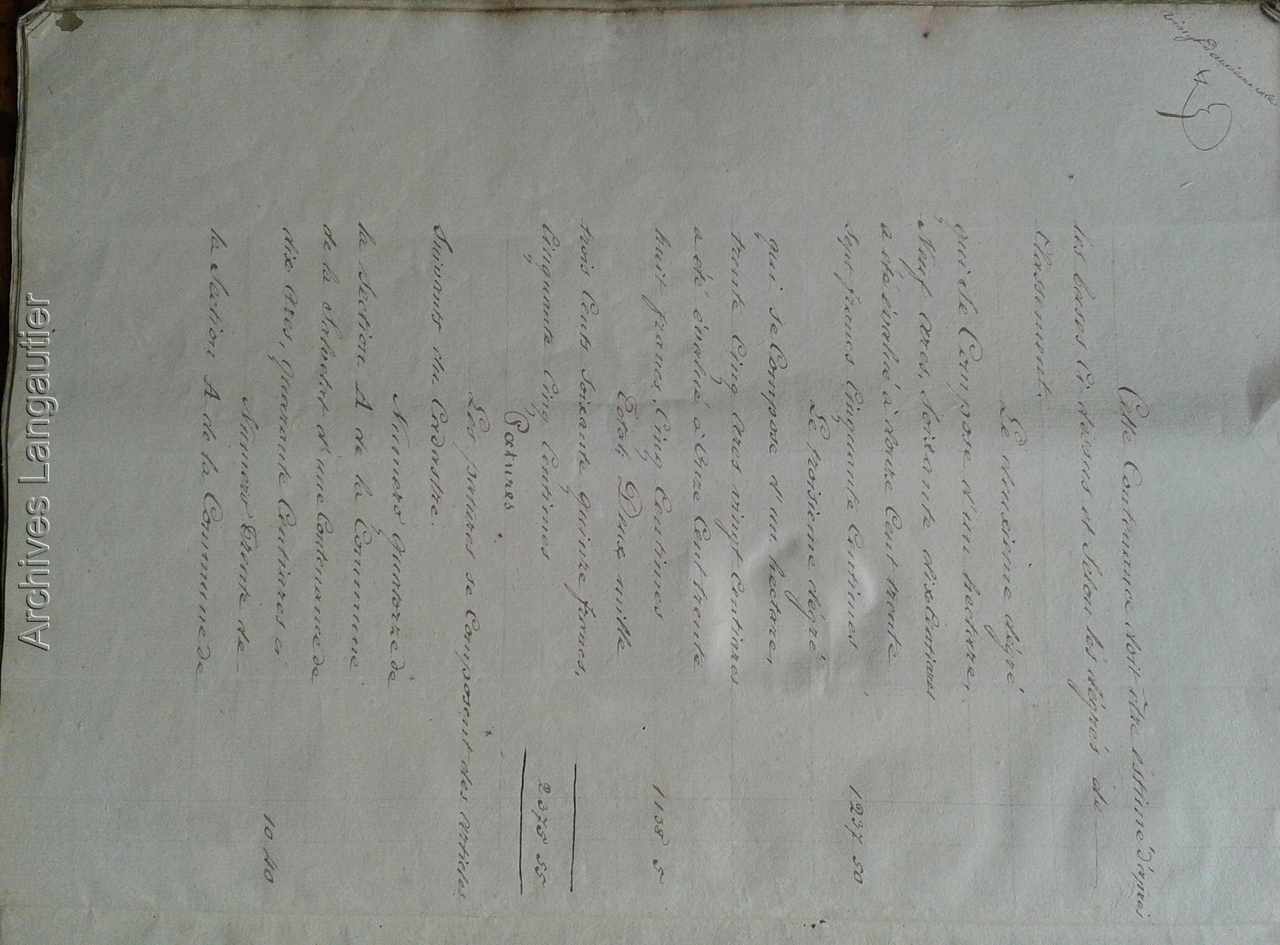 vingt deuxieme rolle
Cette Contenance doit être éstimé d'aprés
les bases Ci-dessus et Selon les dégrés de
Classement.
Le deuxieme dégré
qui se Compose d'un hectare,
Neuf ares, Soixante dix Centiares
a été évalué à douze Cent trente
Sept francs Cinquante Centimes 1237 50
Le troisieme dégré
qui se Compose d'un hectare,
trente Cinq ares vingt Centiares
a été évalué à Onze Cent trente
huit francs, Cinq Centimes 1138 5
Total, Deux mille
trois Cents Soixante quinze francs,
Cinquante Cinq Centimes 2375 55
Patures
Les patures se Composent des articles
Suivants du Cadastre.
Numero quatorze de
la Section A de la Commune
de la Salvetat d'une Contenance de
dix ares, quarante Centiares ci 10 40
Numero Trente de
la Section A de la Commune de
Archives Langautier